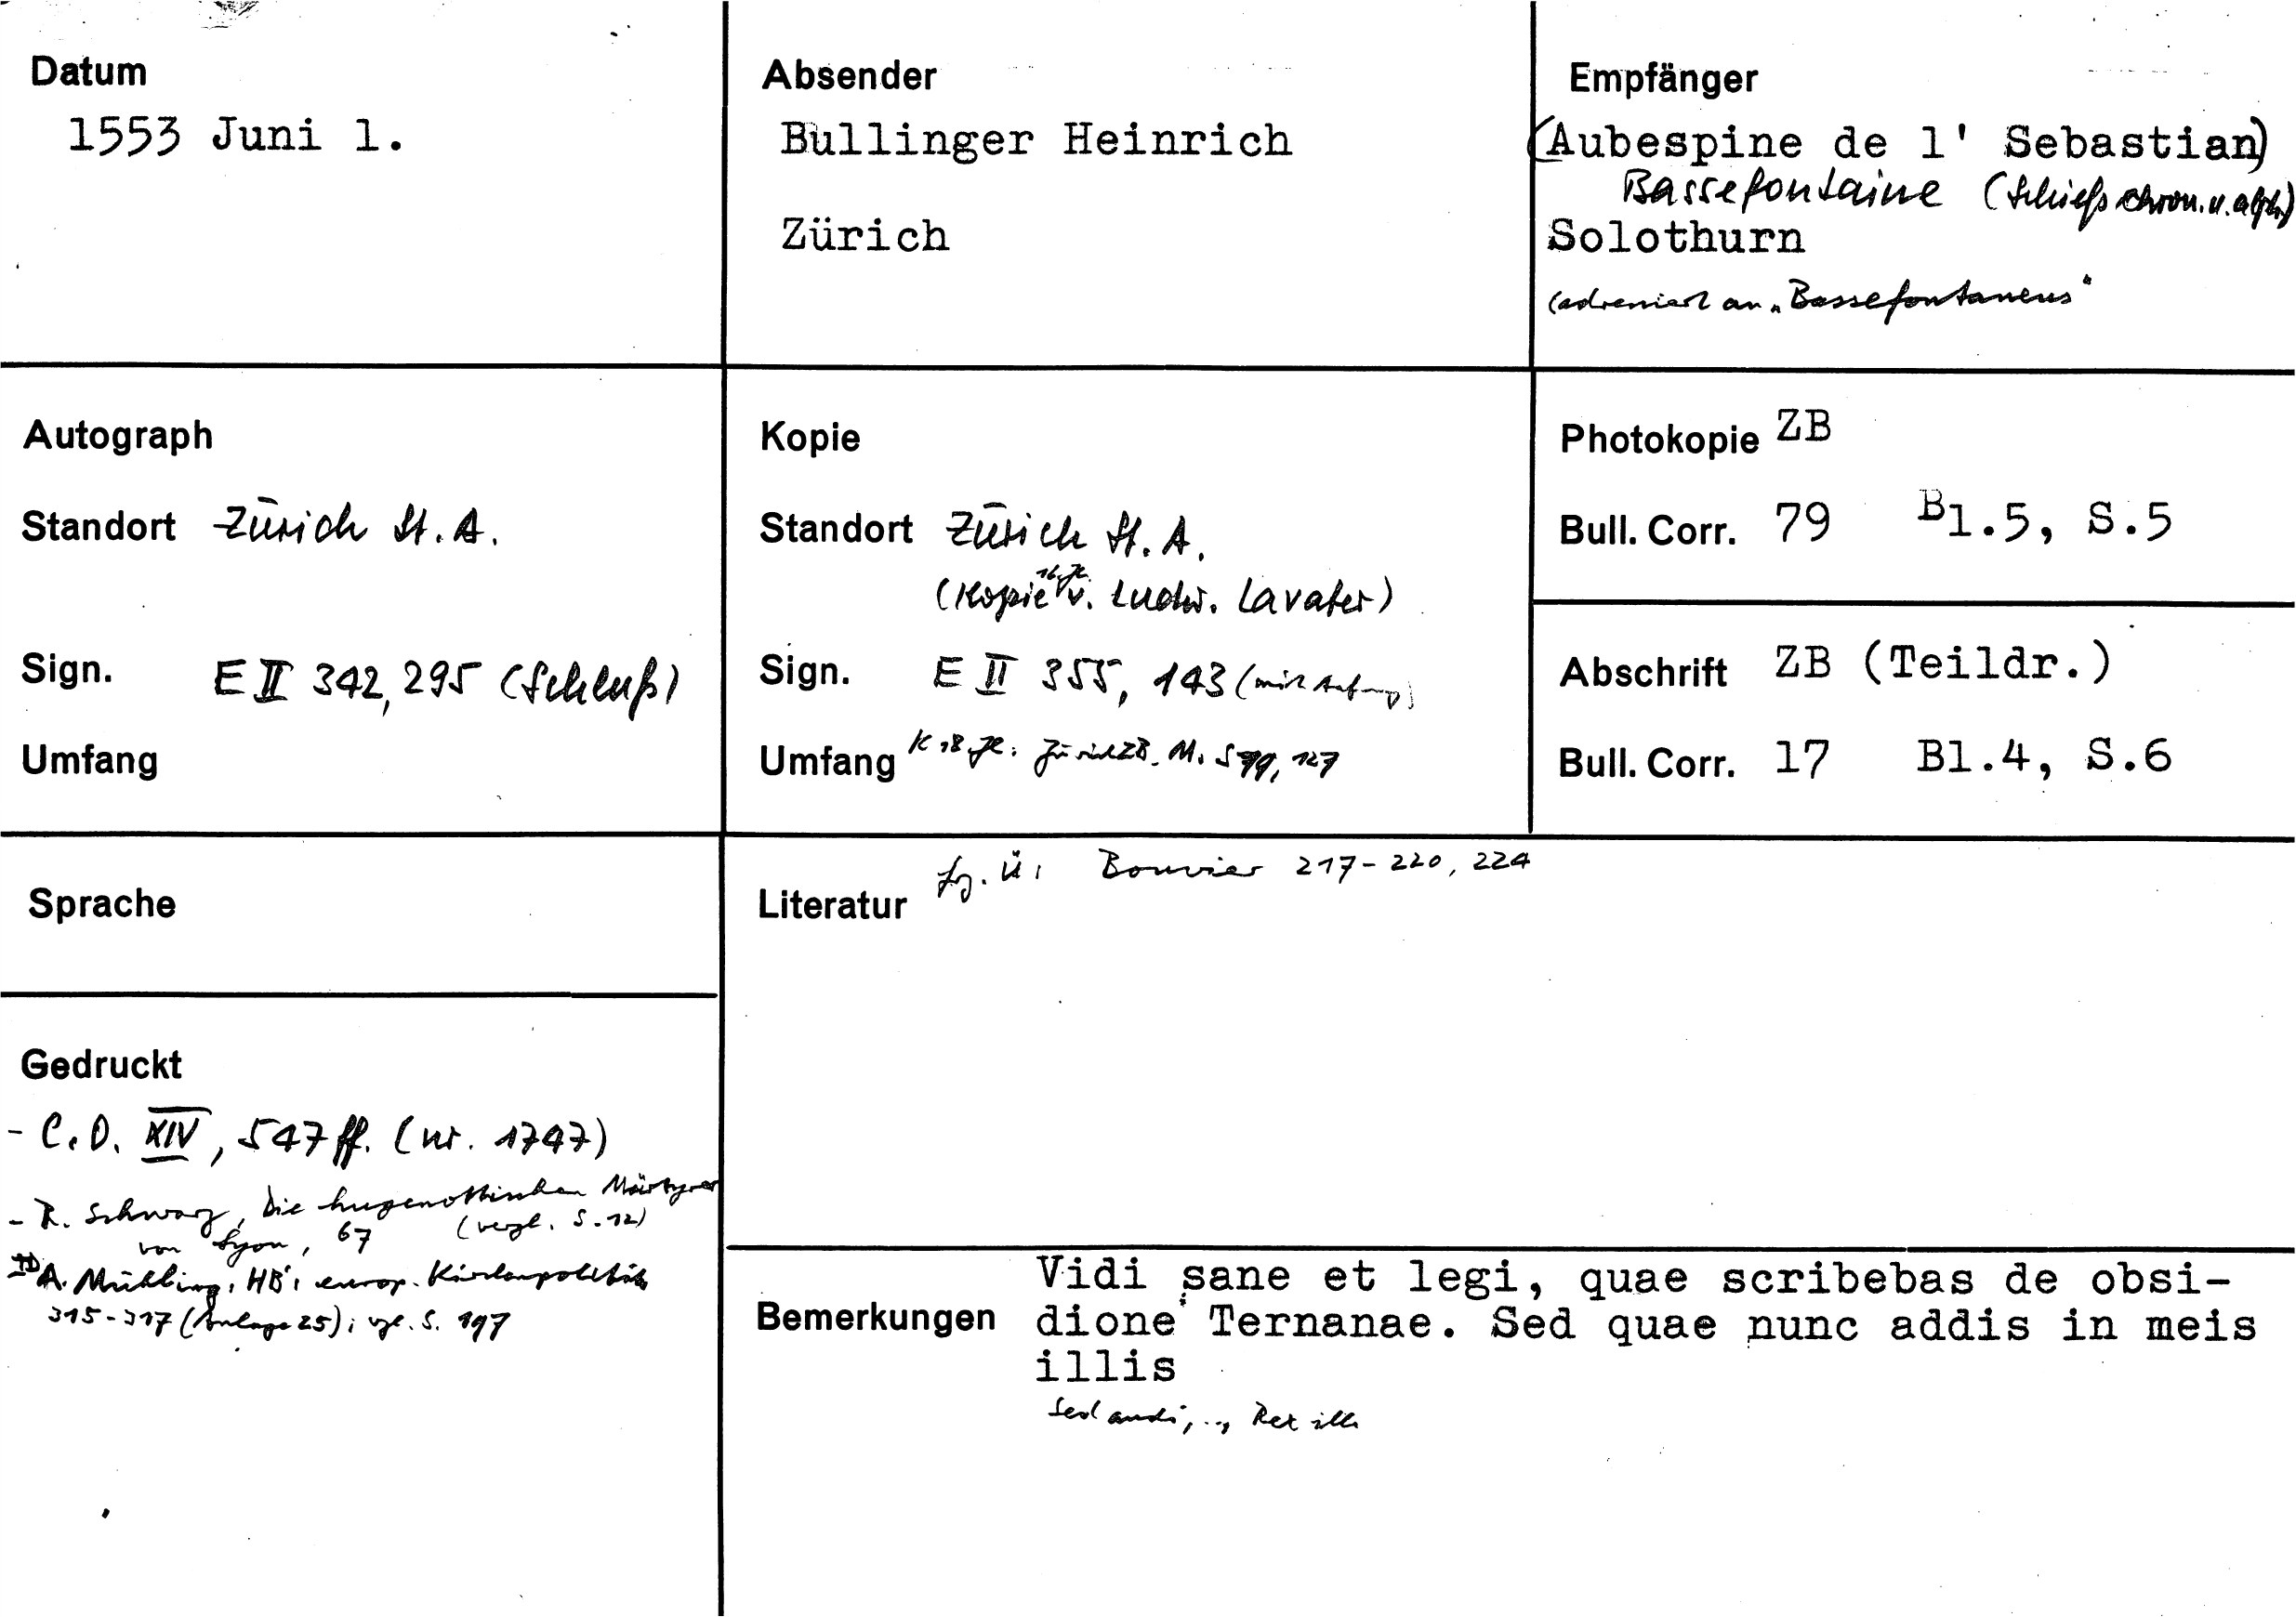 Datum
1553 Juni 1.
Absender
Bullinger Heinrich
Zürich
Empfänger
(Aubespine de l' Sebastian)
Bassefontaine (Schieß chron. u. alph.)
Solothurn
(adressiert an „Bassefontaneus"
Autograph
Standort Zürich St. A.
Sign. E II 342, 295 (Schluß)
Umfang
Kopie
Standort Zürich St. A.
(Kopie 16. Jh. v. Ludw. Lavater)
Sign. E II 355, 143 (mit Anfang)
Umfang K 18. Jh.: Zürich ZB. M. S 79, 127
Photokopie ZB
Bull. Corr. 79 Bl.5, S.5
Abschrift ZB (Teildr.)
Bull. Corr. 17 Bl.4, S.6
Sprache
Gedruckt
- C.O. XIV, 547 ff. (nr. 1747)
- R. Schwarz, Die hugenottischen Märtyrer
von Lyon, 67 (vergl. S. 12)
TD A. Mühling, HB's europ. Kirchenpolitik
315-317 (Anlage 25); vgl. S. 197
Literatur fz. Ü: Bouvier 217-220, 224
Bemerkungen
Vidi sane et legi, quae scribebas de obsi-
dione Ternanae. Sed quae nunc addis in meis
illis
Sed audi, .., Rex ille